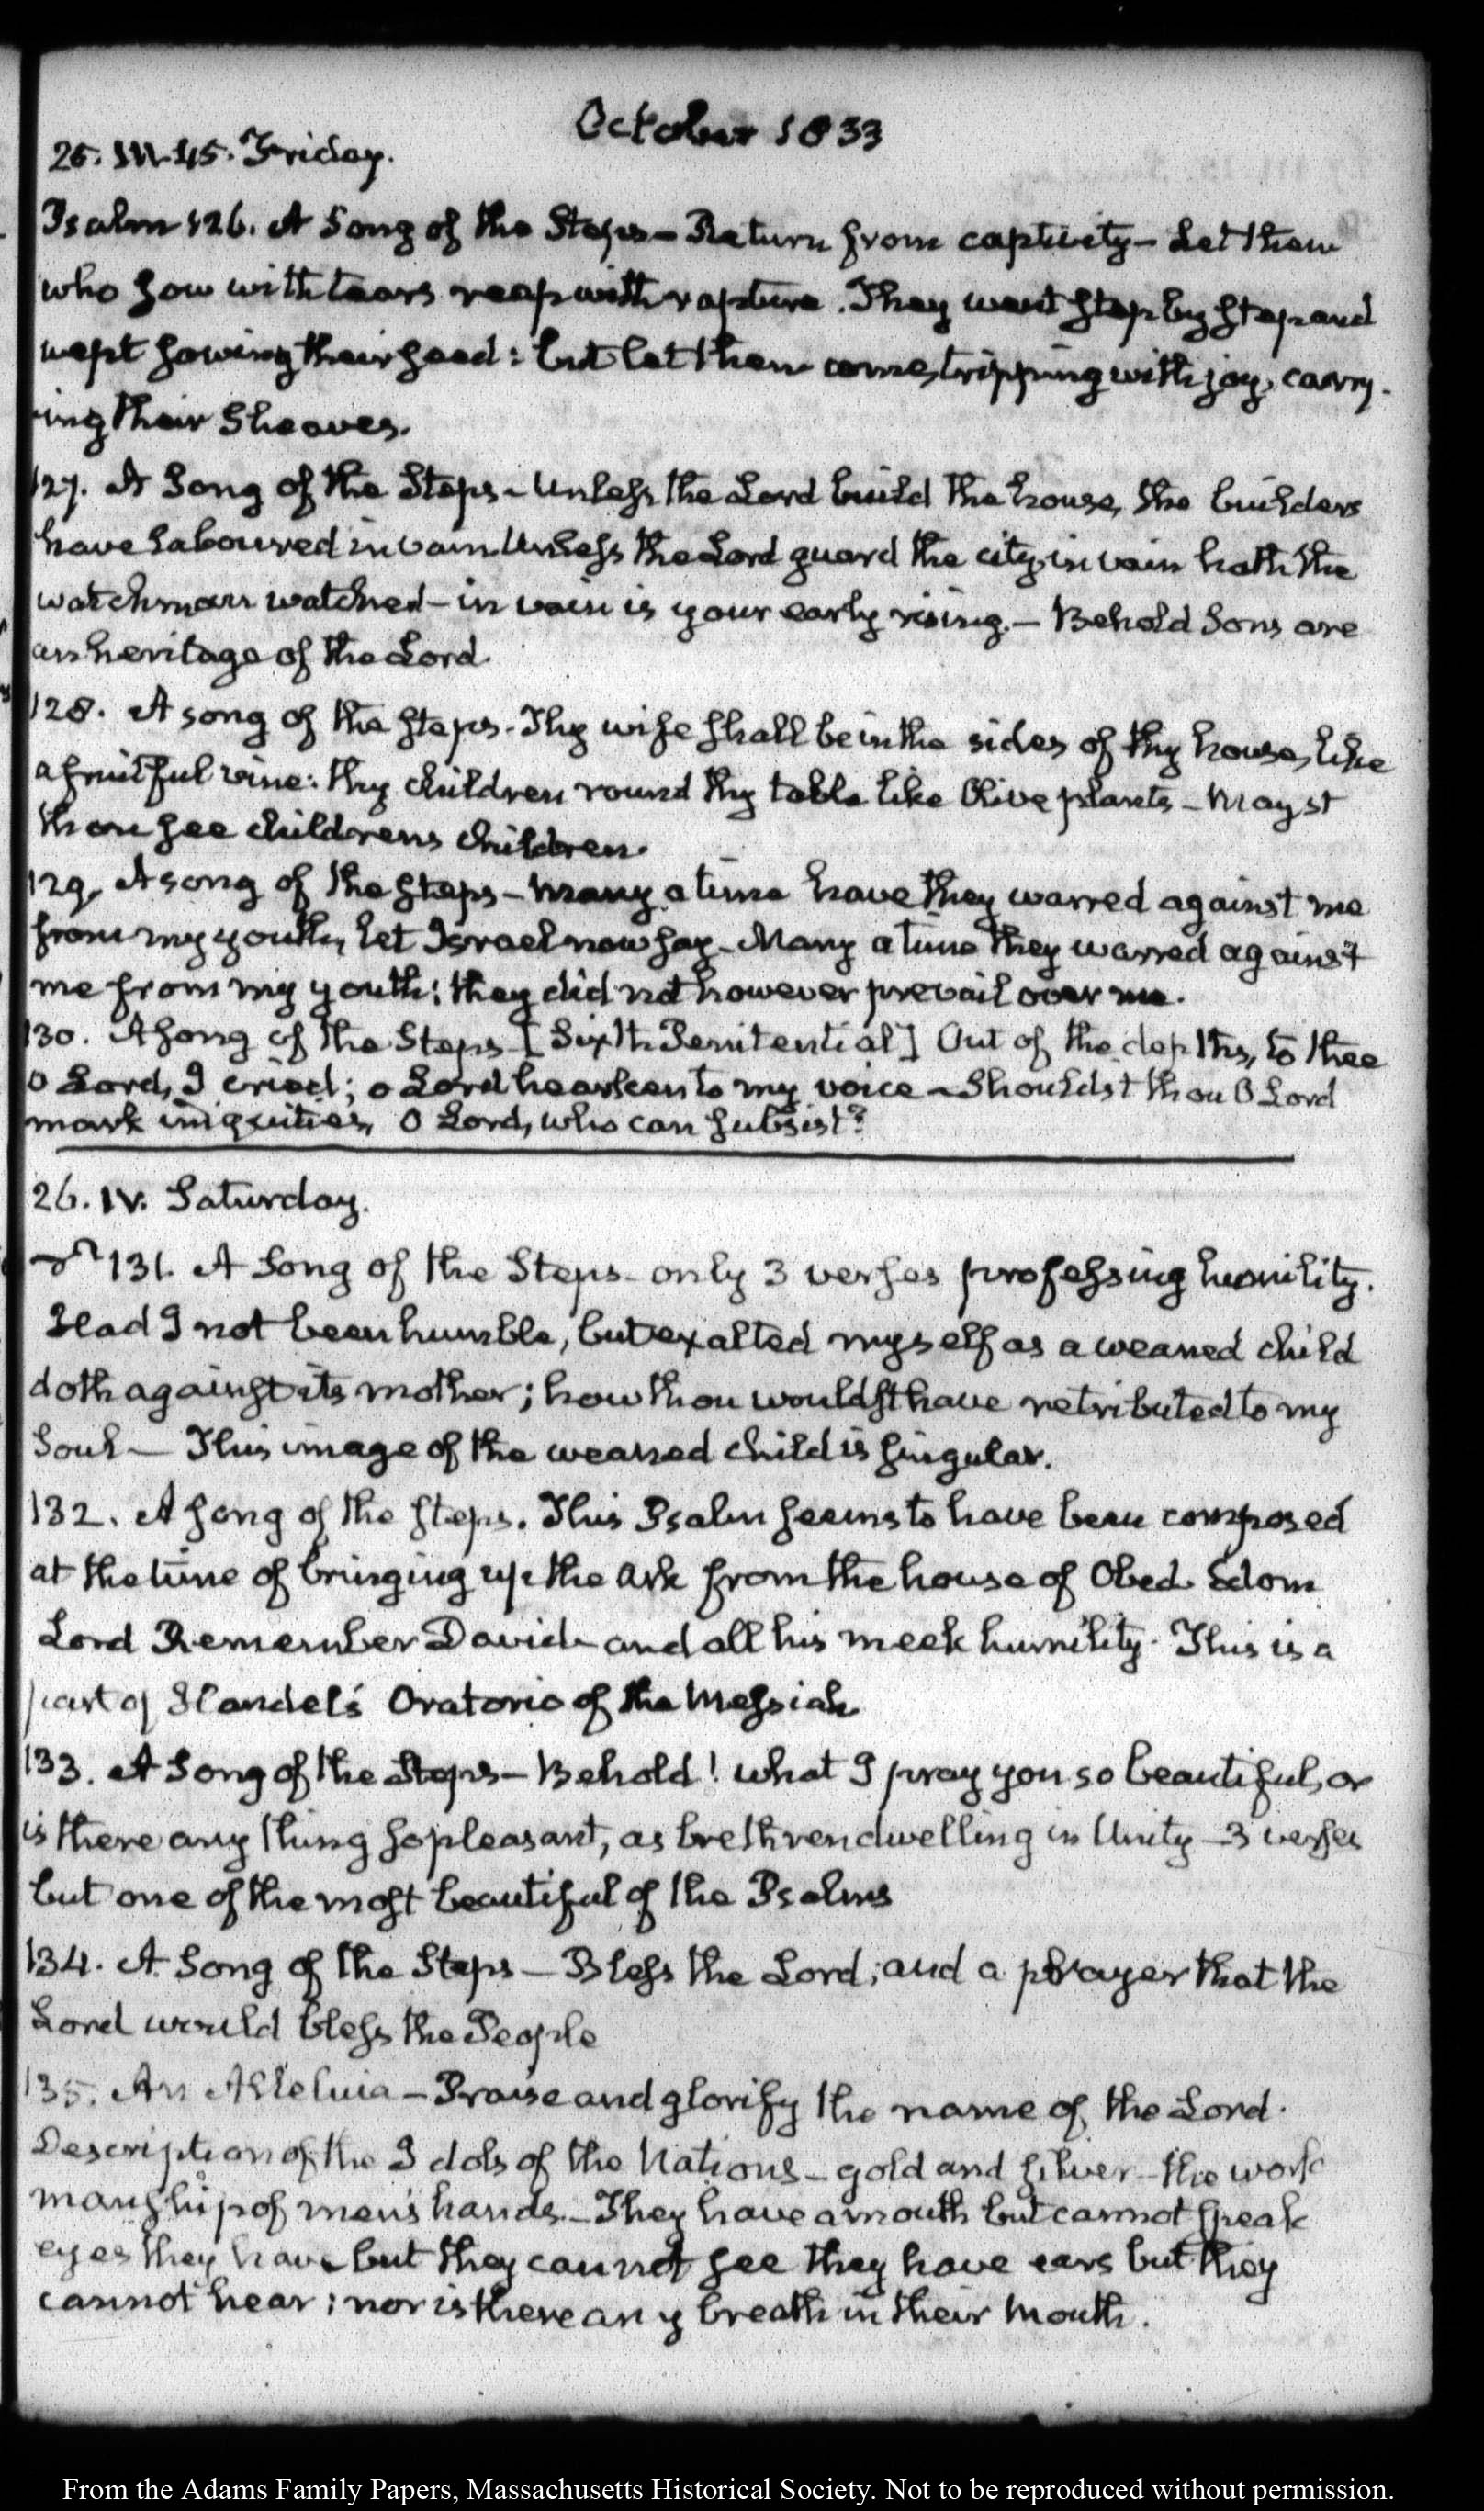 October 1833
25. III.45. Friday.
Psalm 126. A Song of the Steps — Return from captivity — Let them
who sow with tears reap with rapture. They went step by step and
wept sowing their seed: but let them come, tripping with joy, carry-
ing their Sheaves.
127. A Song of the Steps — Unless the Lord build the house, the builders
have laboured in vain Unless the Lord guard the city, in vain hath the
watchman watched — in vain is your early rising. — Behold Sons are
an heritage of the Lord.
128. A song of the steps. Thy wife shall be in the sides of thy house, like
a fruitful vine: thy children round thy table like Olive plants — Mayst
thou see childrens children.
129. A song of the steps — Many a time have they warred against me
from my youth, let Israel now say — Many a time they warred against
me from my youth: they did not however prevail over me.
130. A song of the Steps [Sixth Penitential] Out of the depths, to thee
O Lord, I cried; O Lord hearken to my voice — Shouldst thou O Lord
mark iniquities, O Lord, who can subsist?
26. IV. Saturday.
131. A Song of the Steps — only 3 verses professing humility.
Had I not been humble, but exalted myself as a weaned child
doth against its mother; how thou wouldst have retributed to my
Soul — This image of the weaned child is singular.
132. A song of the steps. This Psalm seems to have been composed
at the time of bringing up the ark from the house of Obed Edom
Lord Remember David and all his meek humility. This is a
part of Handel's Oratorio of the Messiah.
133. A Song of the Steps — Behold! what I pray you so beautiful, or
is there any thing so pleasant, as brethren dwelling in Unity — 3 verses
but one of the most beautiful of the Psalms
134. A Song of the Steps — Bless the Lord; and a prayer that the
Lord would bless the People
135. An Alleluia — Praise and glorify the name of the Lord.
Description of the Idols of the Nations — gold and silver — the work
manship of men's hands. — They have a mouth but cannot speak
eyes they have but they cannot see they have ears but they
cannot hear; nor is there any breath in their mouth.
From the Adams Family Papers, Massachusetts Historical Society. Not to be reproduced without permission.